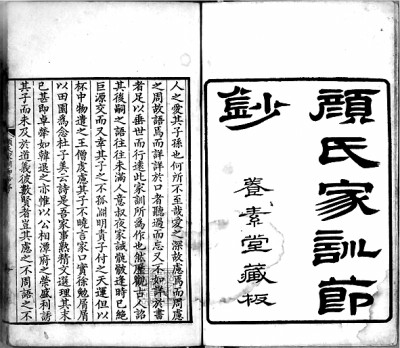 顏氏家訓節
鈔
養素堂藏板
人之愛其子孫也何所不至哉愛之深故慮焉而周慮
之周故語焉而詳詳於口者聽過而忘又不如詳於書
者足以垂世而行遠此家訓所為作也然歷觀古人詔
其後嗣之語往往未滿人意叔夜家誡骫骳逢時已絕
巨源交而又幸其子之不孤淵明責子付之天運但以
杯中物遣之王僧虔慮其子不曉言家口實徐勉屑屑
以田園為念杜子美云詩是吾家事熟精文選理其末
已甚即卓犖如韓退之亦惟以公相潭府之榮盛利誘
其子而未及於道義彼數賢者豈其慮之不周語之不